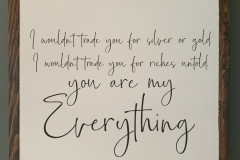 I wouldn't trade you for silver or gold
I wouldn't trade you for riches untold
you are my
Everything